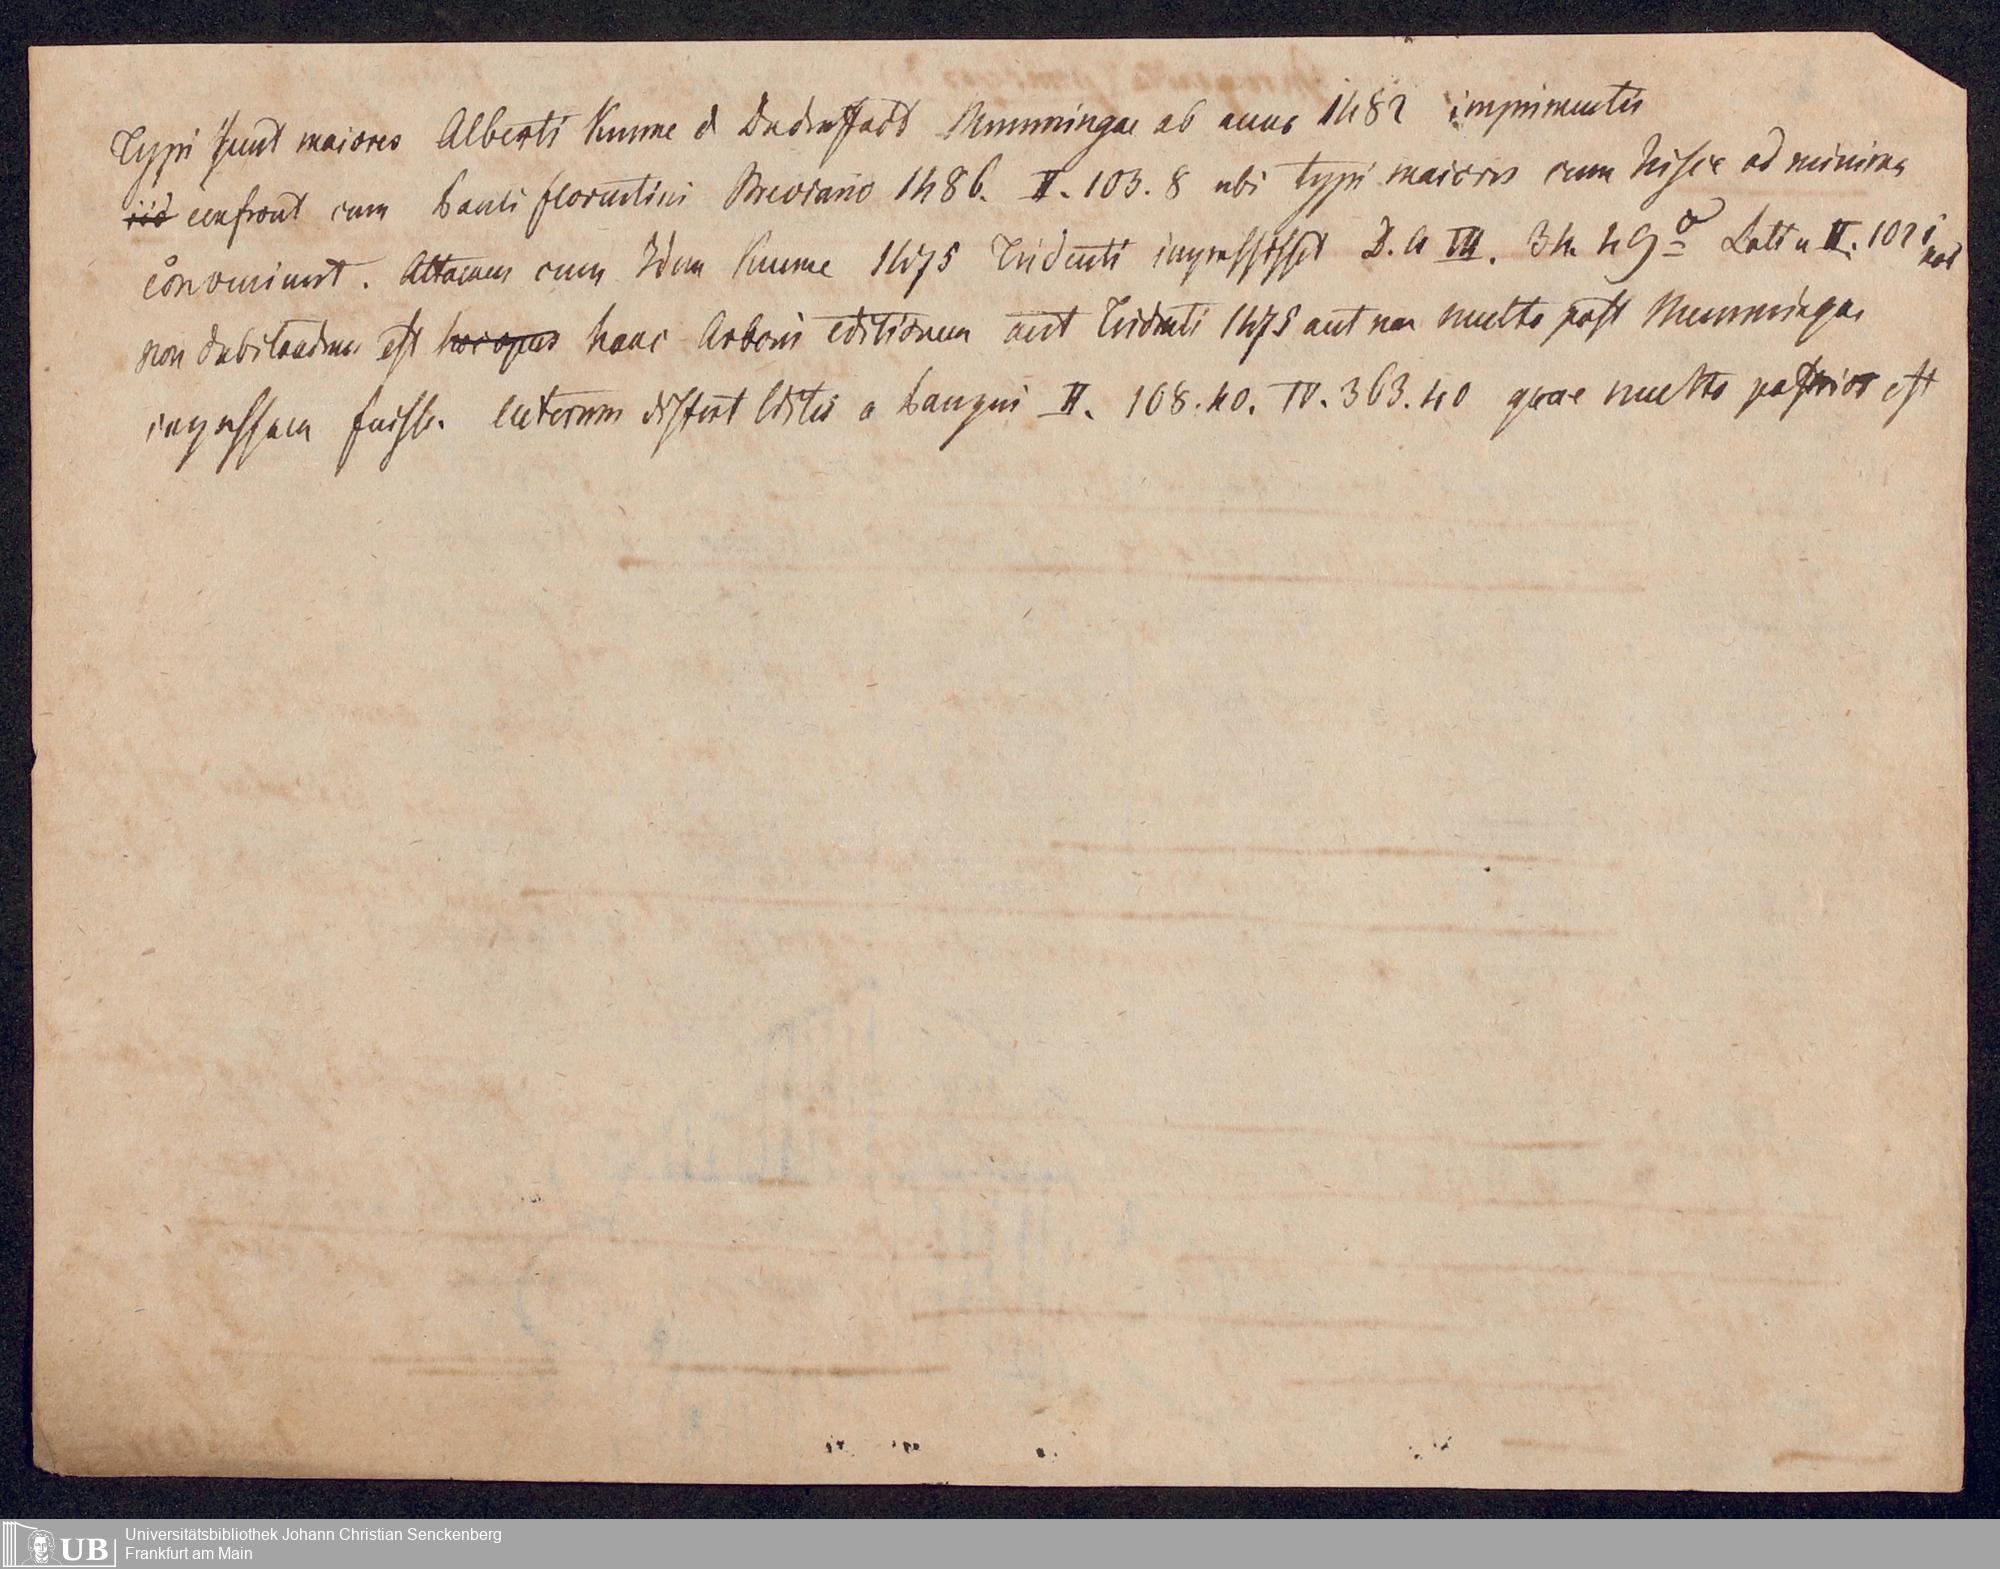 Typi sunt maiores Alberti Kunne d Duderstadt Memmingae ab anno 1482 imprimentis
iid confront cum Pauli florentini Breviario 1486. II. 103. 8 ubi typi maiores cum hisce ad minima
conveniunt. Attamen cum Idem Kunne 1475 Tridenti impressisset D. A VII. 34 49 II. 102
non dubitandum est hoc opus hanc Arboris editionem aut Tridenti 1475 aut non multo post Memmingae
impressam fuisse. Ceterum differt Editio a Panzeri II. 108. 40. IV. 363. 40 quae multo postrior est
Universitätsbibliothek Johann Christian Senckenberg
Frankfurt am Main
UB